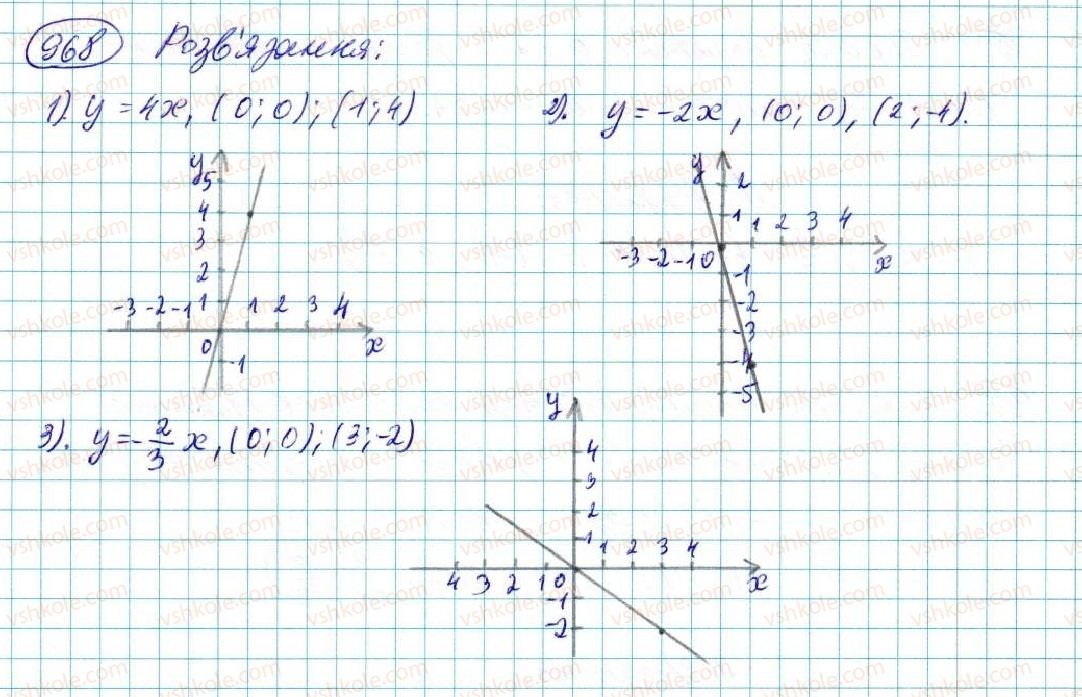 968 Розв'язання:
1). y = 4x, (0; 0); (1; 4)
2). y = -2x, (0; 0), (2; -4).
y
5
4
3
2
1
-3 -2 -1 1 2 3 4
0 x
-1
y
2
1
1 2 3 4
-3 -2 -1 0 x
-1
-2
-3
-4
-5
3). y = -2/3 x, (0; 0); (3; -2)
y
4
3
2
1
1 2 3 4
4 3 2 1 0 x
-1
-2
vshkole.com